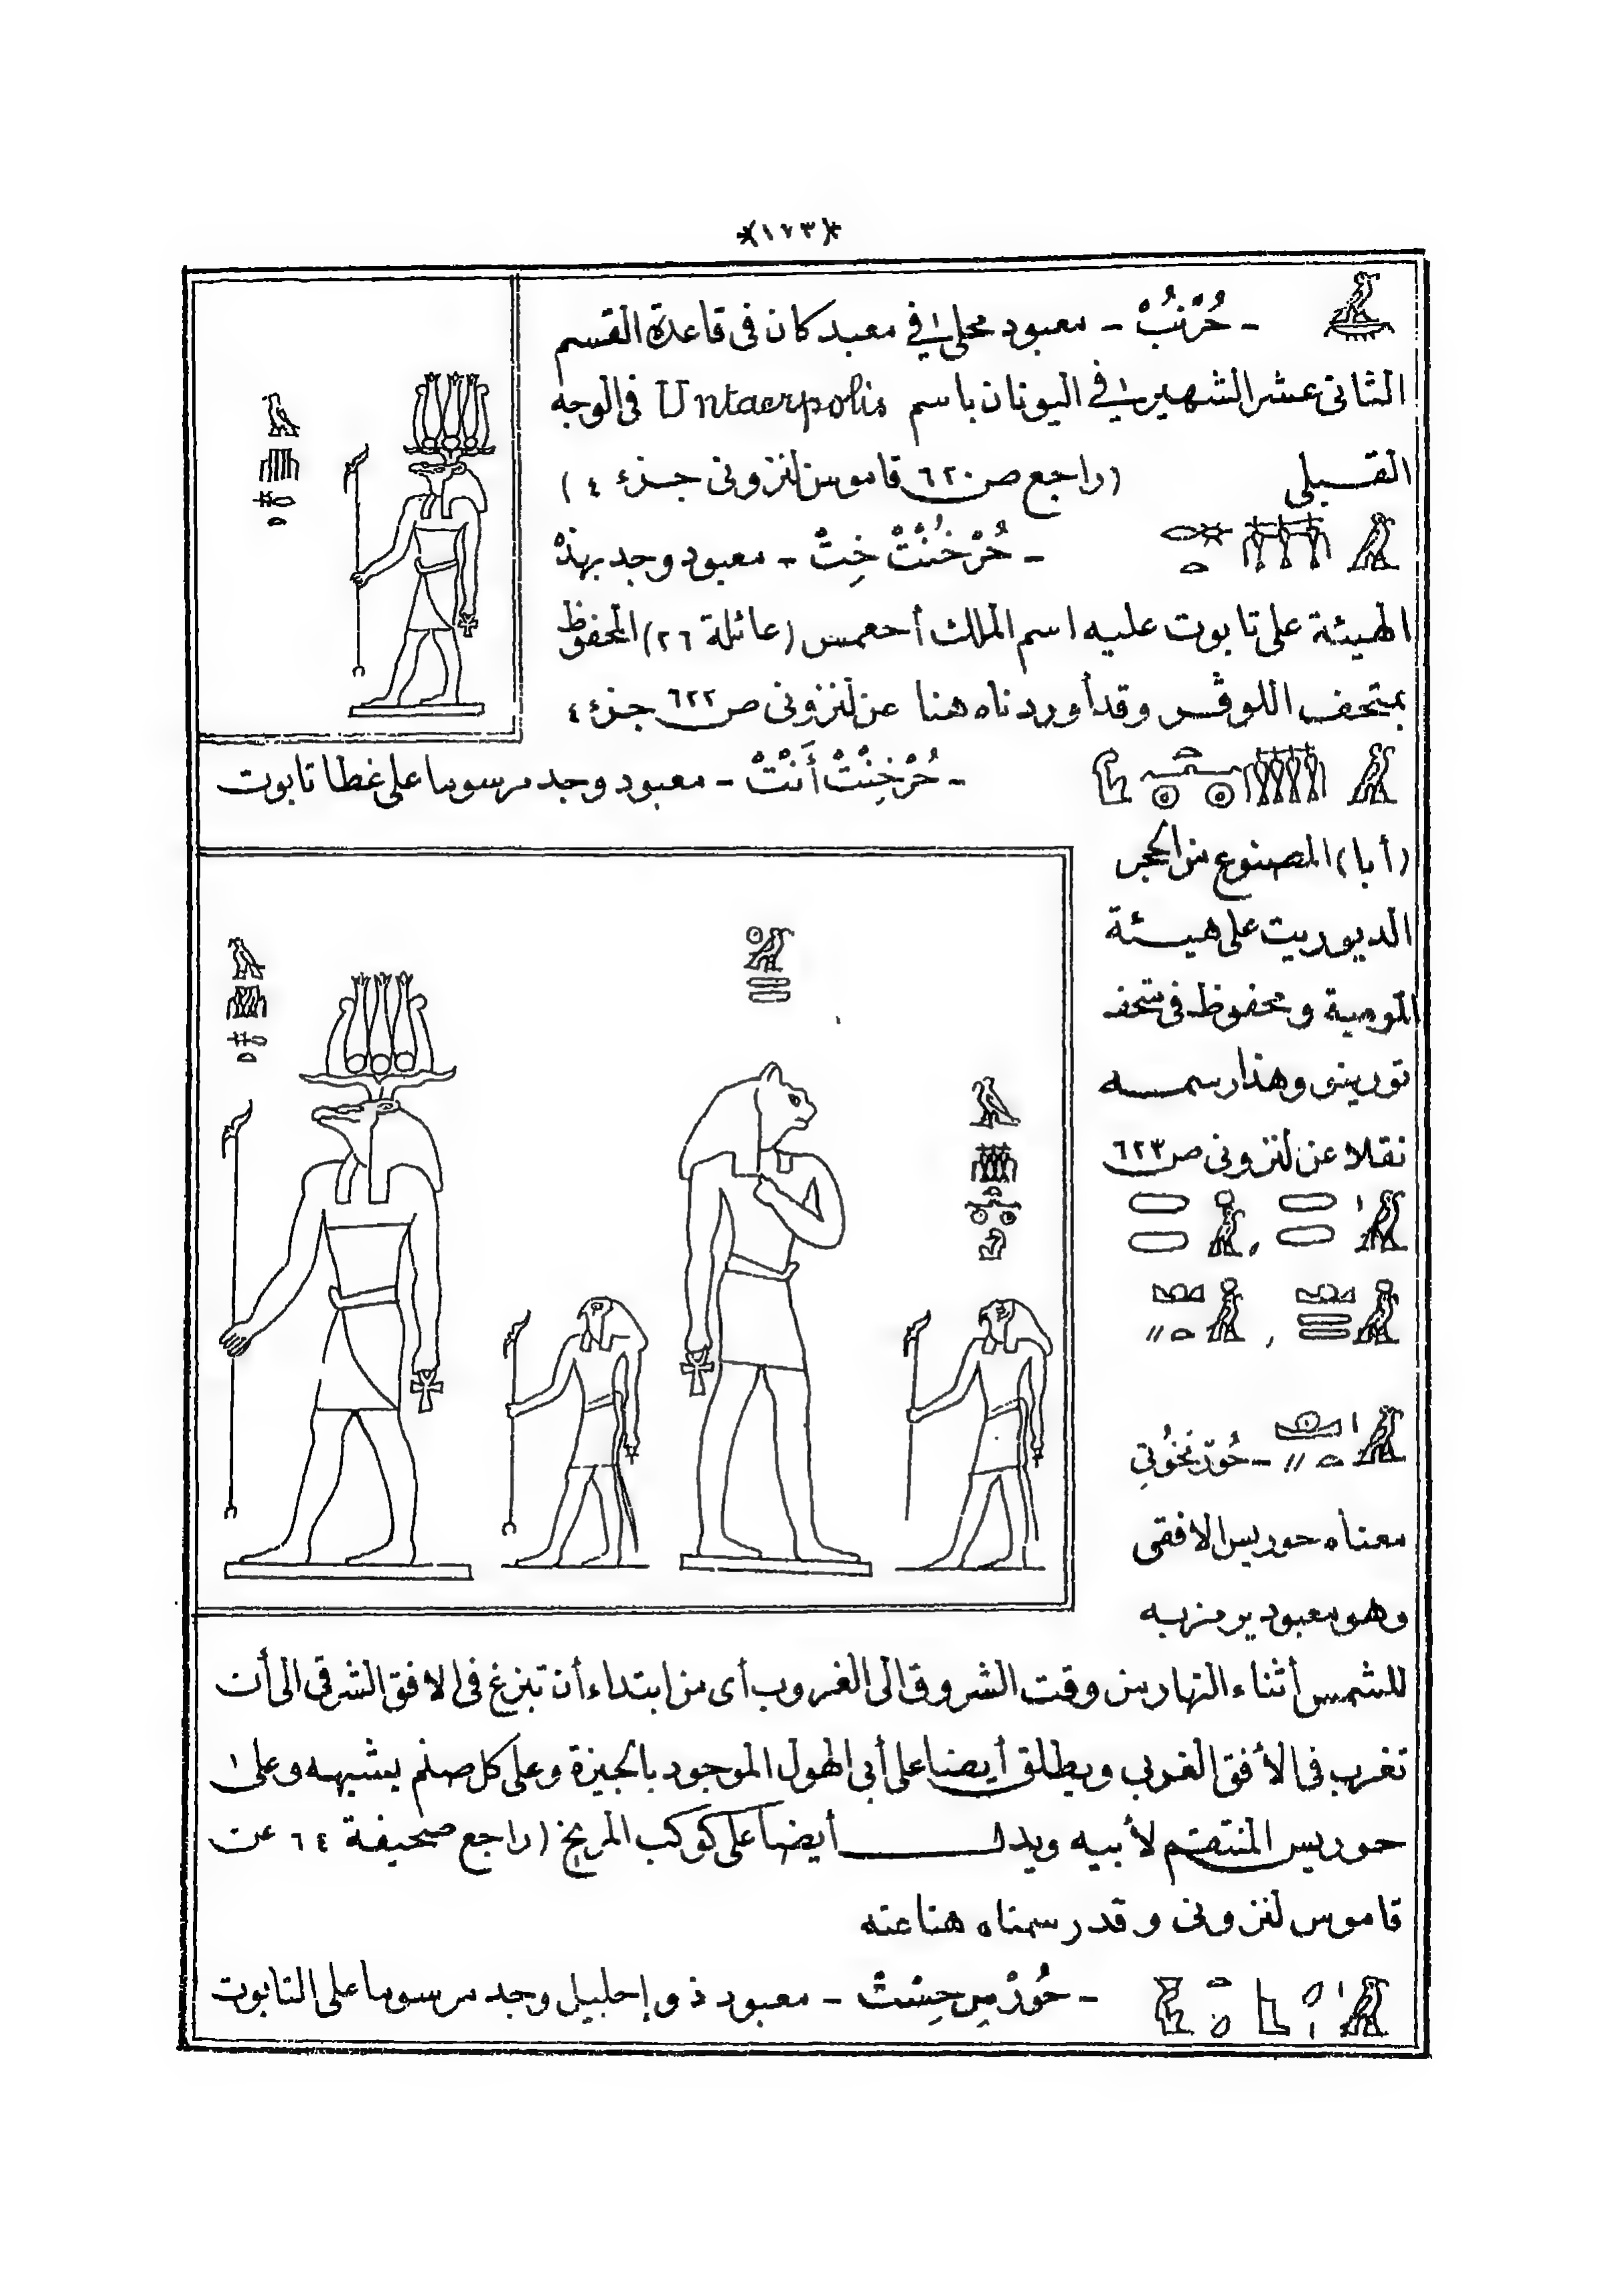 ﴿١٧٣﴾
- حُرْنُبْ - معبود محلى في معبد كان فى قاعدة القسم
الثانى عشر الشهير في اليونان باسم Untaerpolis فى الوجه
القبلى (راجع ص ٦٢٠ قاموس لنزونى جزء ٤)
- حُرْخُنْتْ خِتْ - معبود وجد بهذه
الهيئة على تابوت عليه اسم الملك أحعمس (عائلة ٢٦) المحفوظ
بمتحف اللوڤر وقد أوردناه هنا عن لنزونى ص ٦٢٢ جزء ٤
- حُرْخِنْتْ أَنْتْ - معبود وجد مرسوما على غطا تابوت
(أبا) المصنوع من الحجر
الديوريت على هيئة
المومية ومحفوظ فى متحف
تورينى وهذا رسمه
نقلا عن لنزونى ص ٦٢٣
- حُورْنَخُوتِى
معناه حوريس الافقى
وهو معبود يرمز به
للشمس أثناء النهار من وقت الشروق الى الغروب أى من ابتداء أن تبزغ فى الافق الشرقى الى أن
تغرب فى الأفق الغربى ويطلق أيضا على أبى الهول الموجود بالجيزة وعلى كل صنم يشبهه وعلى
حوريس المنتقم لأبيه ويدل أيضا على كوكب المريخ (راجع صحيفة ٦٤ من
قاموس لنزونى وقد رسمناه هنا عنه
- حُورْمِرحِسْتْ - معبود ذو إحليل وجد مرسوما على التابوت